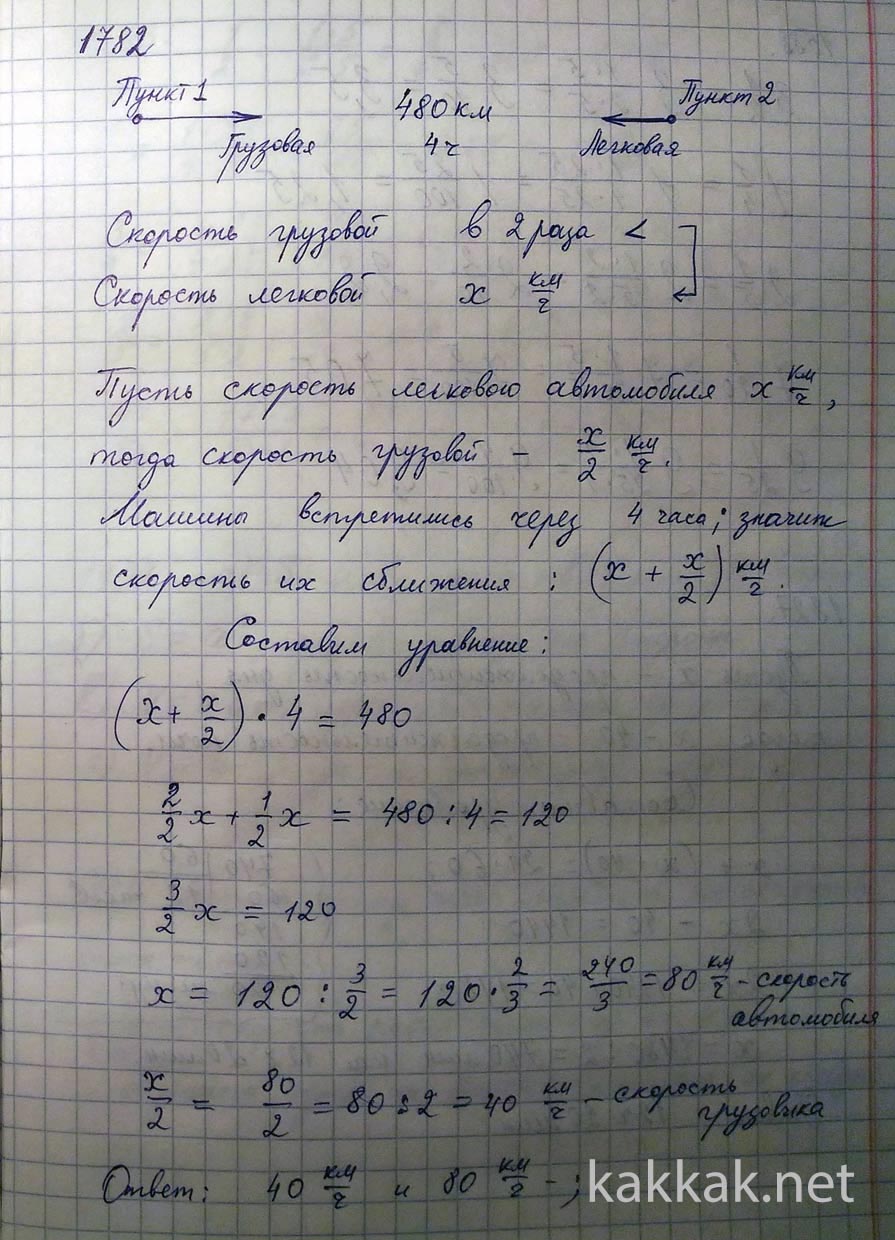 1782
Пункт 1 480 км Пункт 2
Грузовая 4 ч Легковая
Скорость грузовой в 2 раза <
Скорость легковой x км/ч
Пусть скорость легкового автомобиля x км/ч,
тогда скорость грузовой – x/2 км/ч.
Машины встретились через 4 часа; значит
скорость их сближения : (x + x/2) км/ч.
Составим уравнение:
(x + x/2) · 4 = 480
2/2 x + 1/2 x = 480 : 4 = 120
3/2 x = 120
x = 120 : 3/2 = 120 · 2/3 = 240/3 = 80 км/ч – скорость
автомобиля
x/2 = 80/2 = 80 : 2 = 40 км/ч – скорость
грузовика
Ответ: 40 км/ч и 80 км/ч - ;
kakkak.net